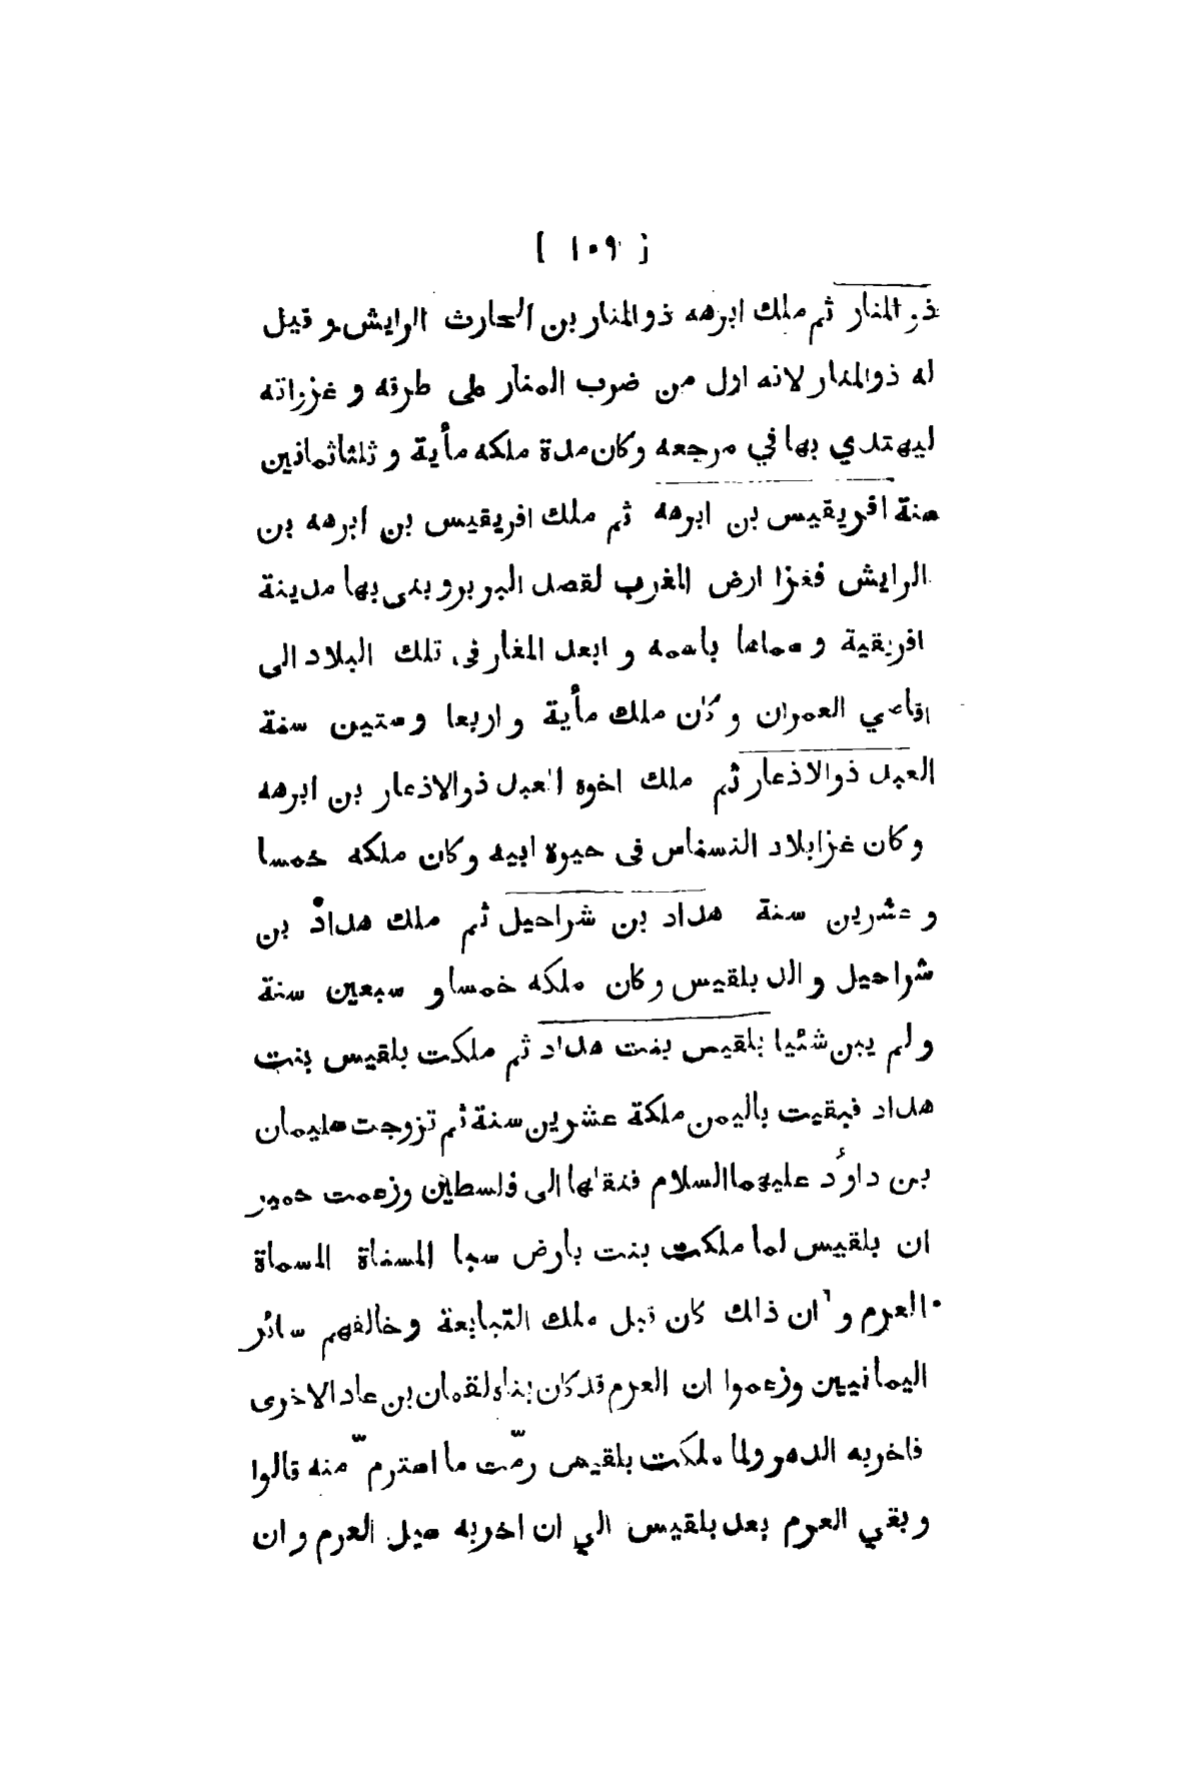 [ ١٠٩ ]
ذو المنار ثم ملك ابرهه ذو المنار بن الحارث الرايش و قيل
له ذوالمنار لانه اول من ضرب المنار على طرقه و غزواته
ليهتدي بها في مرجعه وكان مدة ملكه مأية و ثلثاثمانين
سنة افريقيس بن ابرهه ثم ملك افريقيس بن ابرهه بن
الرايش فغزا ارض المغرب لقصد البربر و بنى بها مدينة
افريقية و سماها باسمه و ابعد المغار فى تلك البلاد الى
اقاصي العمران و كان ملك مأية و اربعا وستين سنة
العبد ذوالاذعار ثم ملك اخوه العبد ذوالاذعار بن ابرهه
وكان غزا بلاد النسناس فى حيوة ابيه وكان ملكه خمسا
و عشرين سنة هداد بن شراحيل ثم ملك هداد بن
شراحيل والد بلقيس وكان ملكه خمسا و سبعين سنة
ولم يبن شئيا بلقيس بنت هداد ثم ملكت بلقيس بنت
هداد فبقيت باليمن ملكة عشرين سنة ثم تزوجت سليمان
بن داؤد عليهما السلام فنقلها الى فلسطين وزعمت حمير
ان بلقيس لما ملكت بنت بارض سبا المسناة المسماة
العرم و ان ذالك كان قبل ملك التبابعة وخالفهم سائر
اليمانيين وزعموا ان العرم قد كان بناه لقمان بن عاد الاخرى
فاخربه الدهر ولما ملكت بلقيس رمّت ما استرم منه قالوا
وبقي العرم بعد بلقيس الي ان اخربه سيل العرم وان